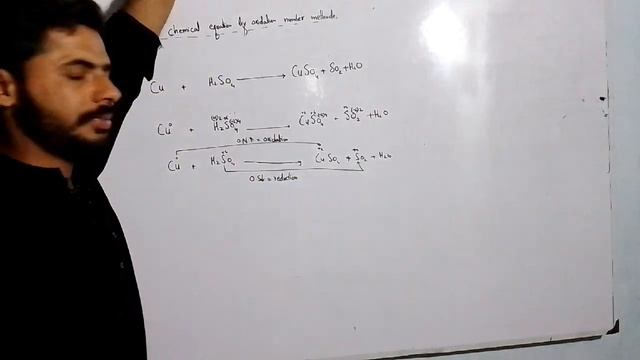 chemical equation by oxidation number methode.
Cu + H₂SO₄ → CuSO₄ + SO₂ + H₂O
Cu⁰ + H₂SO₄ → CuSO₄ + SO₂ + H₂O
oxidation
Cu + H₂SO₄ → CuSO₄ + SO₂ + H₂O
= reduction